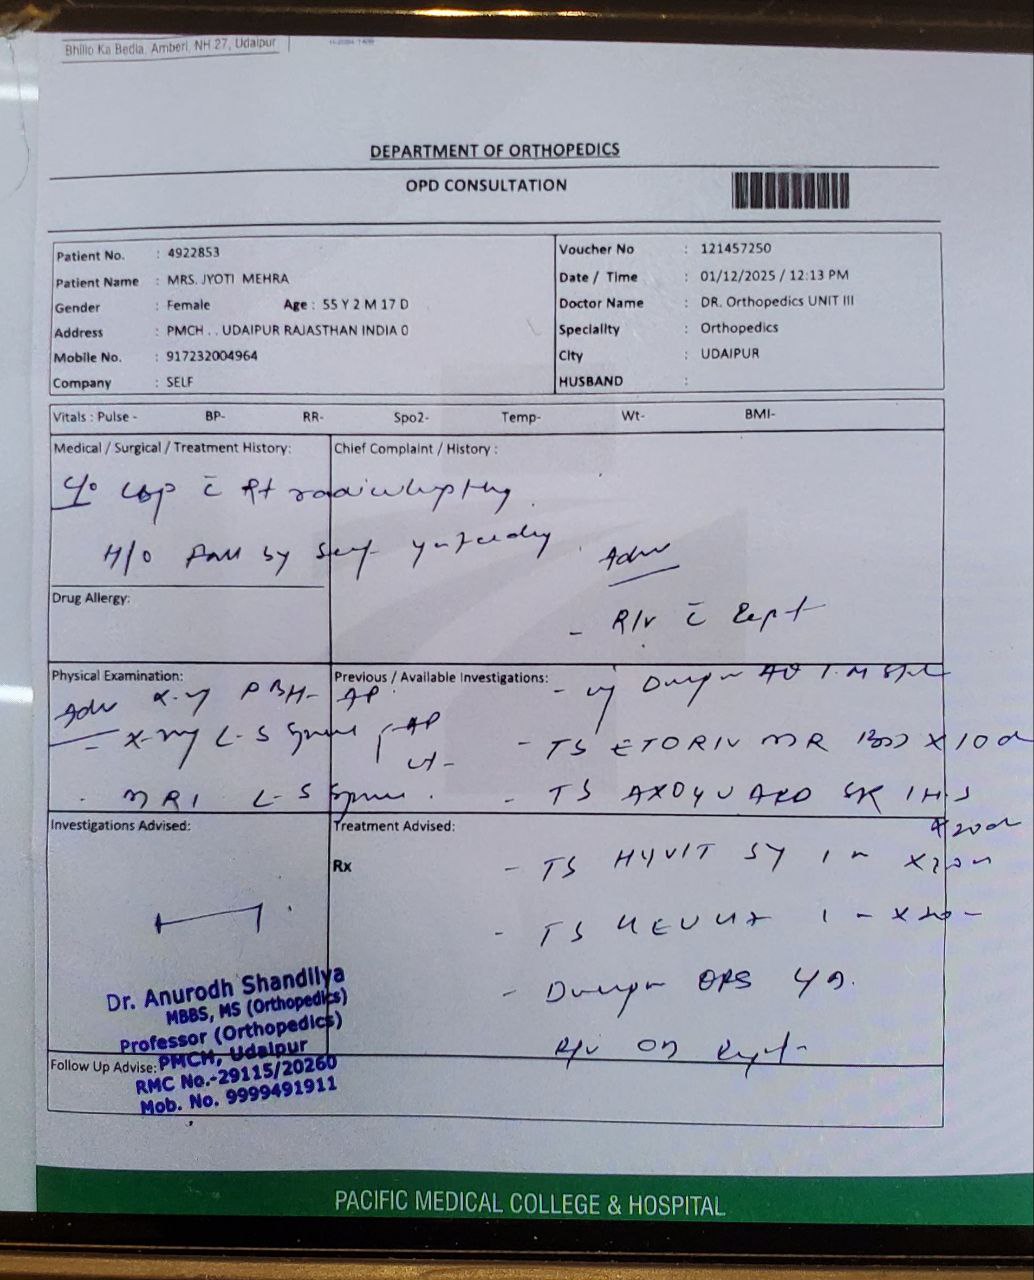 Bhilo Ka Bedla, Amberi, NH 27, Udaipur
DEPARTMENT OF ORTHOPEDICS
OPD CONSULTATION
Patient No. : 4922853
Patient Name : MRS. JYOTI MEHRA
Gender : Female Age : 55 Y 2 M 17 D
Address : PMCH . . UDAIPUR RAJASTHAN INDIA 0
Mobile No. : 917232004964
Company : SELF
Voucher No : 121457250
Date / Time : 01/12/2025 / 12:13 PM
Doctor Name : DR. Orthopedics UNIT III
Speciality : Orthopedics
City : UDAIPUR
HUSBAND :
Vitals : Pulse - BP- RR- Spo2- Temp- Wt- BMI-
Medical / Surgical / Treatment History:
C/o LBP c̄ Rt radiculopathy
H/O Fall by self yesterday.
Chief Complaint / History :
Adv
- R/v c̄ Rept
Drug Allergy:
Physical Examination:
Adv X-ray PBH- AP
- X-ray L-S Spine AP
- MRI L-S Spine.
Previous / Available Investigations:
- TS ETORIV MR x 10d
- TS 1 HS
x 20d
Investigations Advised:
Treatment Advised:
Rx
- TS HYVIT 1
- TS 1
-
R/v on Rept
Dr. Anurodh Shandilya
MBBS, MS (Orthopedics)
Professor (Orthopedics)
PMCH, Udaipur
RMC No.-29115/20260
Mob. No. 9999491911
Follow Up Advise:
PACIFIC MEDICAL COLLEGE & HOSPITAL